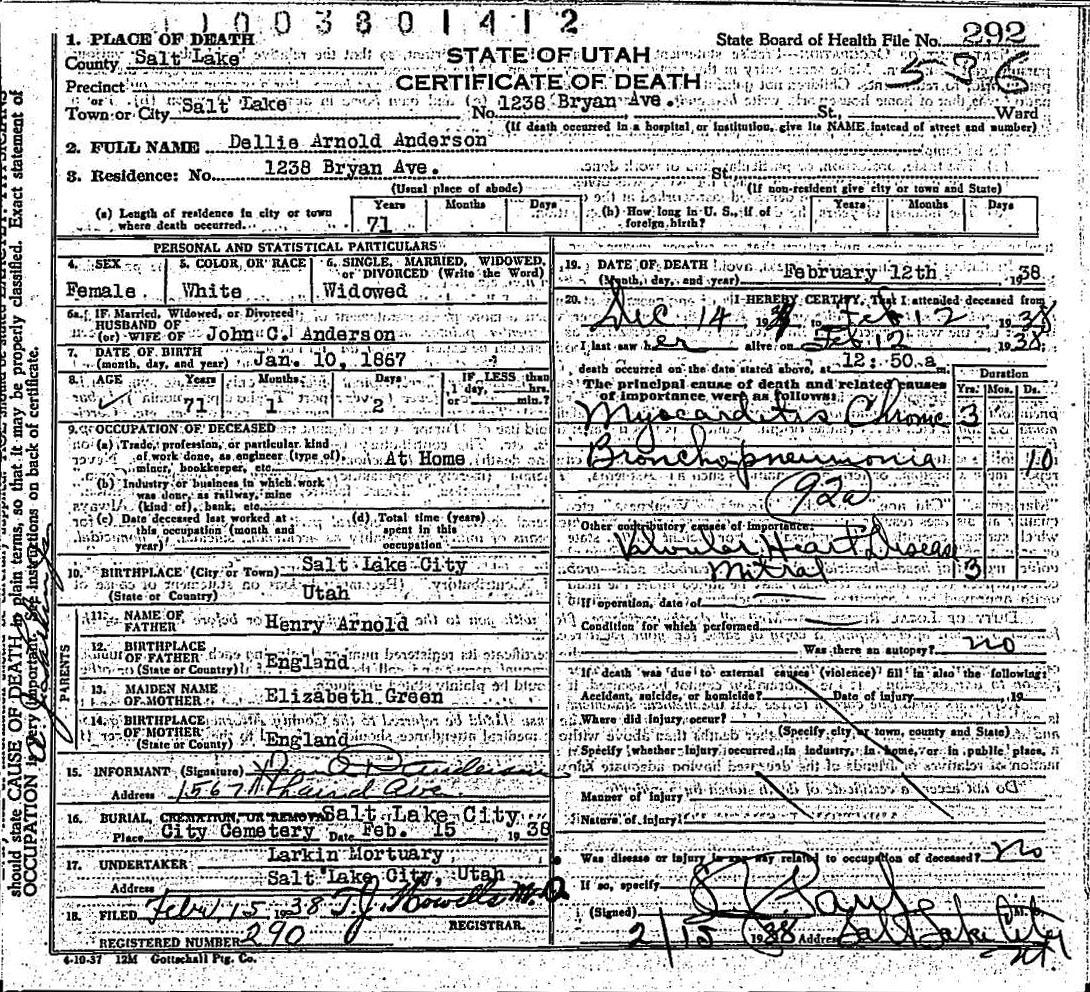 1003801412
1. PLACE OF DEATH
County Salt Lake
Precinct
or
Town or City Salt Lake
STATE OF UTAH
CERTIFICATE OF DEATH
State Board of Health File No. 292
536
No. 1238 Bryan Ave. St., Ward
(If death occurred in a hospital or institution, give its NAME instead of street and number)
2. FULL NAME Dellie Arnold Anderson
3. Residence: No. 1238 Bryan Ave. St.
(Usual place of abode) (If non-resident give city or town and State)
(a) Length of residence in city or town where death occurred. Years 71 Months Days
(b) How long in U. S., if of foreign birth? Years Months Days
PERSONAL AND STATISTICAL PARTICULARS
4. SEX Female
5. COLOR OR RACE White
6. SINGLE, MARRIED, WIDOWED, or DIVORCED (Write the Word) Widowed
6a. IF Married, Widowed, or Divorced
HUSBAND OF
(or) WIFE OF John C. Anderson
7. DATE OF BIRTH
(month, day, and year) Jan. 10, 1867
8. AGE Years 71 Months 1 Days 2 IF LESS than 1 day, hrs. or min.?
9. OCCUPATION OF DECEASED
(a) Trade, profession, or particular kind
of work done, as engineer (type of),
miner, bookkeeper, etc. At Home
(b) Industry or business in which work
was done, as railway, mine
(kind of), bank, etc.
(c) Date deceased last worked at
this occupation (month and
year)
(d) Total time (years)
spent in this
occupation
10. BIRTHPLACE (City or Town) Salt Lake City
(State or Country) Utah
PARENTS
11. NAME OF
FATHER Henry Arnold
12. BIRTHPLACE
OF FATHER
(State or Country) England
13. MAIDEN NAME
OF MOTHER Elizabeth Green
14. BIRTHPLACE
OF MOTHER
(State or Country) England
15. INFORMANT (Signature) Anderson
Address 1567 Ave
16. BURIAL, CREMATION, OR REMOVAL Salt Lake City
Place City Cemetery Date Feb. 15 1938
17. UNDERTAKER Larkin Mortuary
Address Salt Lake City, Utah
18. FILED Febr. 15 1938 T. J. Howells M. D.
REGISTRAR.
REGISTERED NUMBER 290
4-10-37 12M Gottschall Ptg. Co.
19. DATE OF DEATH
(Month, day, and year) February 12th 1938
20. I HEREBY CERTIFY, That I attended deceased from
Dec 14 to Feb 12 1938
I last saw her alive on Feb 12 1938
death occurred on the date stated above, at 12:50 a m.
The principal cause of death and related causes
of importance were as follows: Duration Yrs. Mos. Ds.
Myocarditis Chronic 3
Bronchopneumonia 10
92a
Other contributory causes of importance:
Valvular Heart Disease
Mitral 3
If operation, date of
Condition for which performed
Was there an autopsy? no
If death was due to external causes (violence) fill in also the following:
Accident, suicide, or homicide? Date of injury 19
Where did injury occur?
(Specify city or town, county and State)
Specify whether injury occurred in industry, in home, or in public place.
Manner of injury
Nature of injury
Was disease or injury in any way related to occupation of deceased? No
If so, specify
(Signed) M. D.
2/15 1938 Address Salt Lake City
Ut.
should state CAUSE OF DEATH in plain terms, so that it may be properly classified. Exact statement of
OCCUPATION is very important. See instructions on back of certificate.